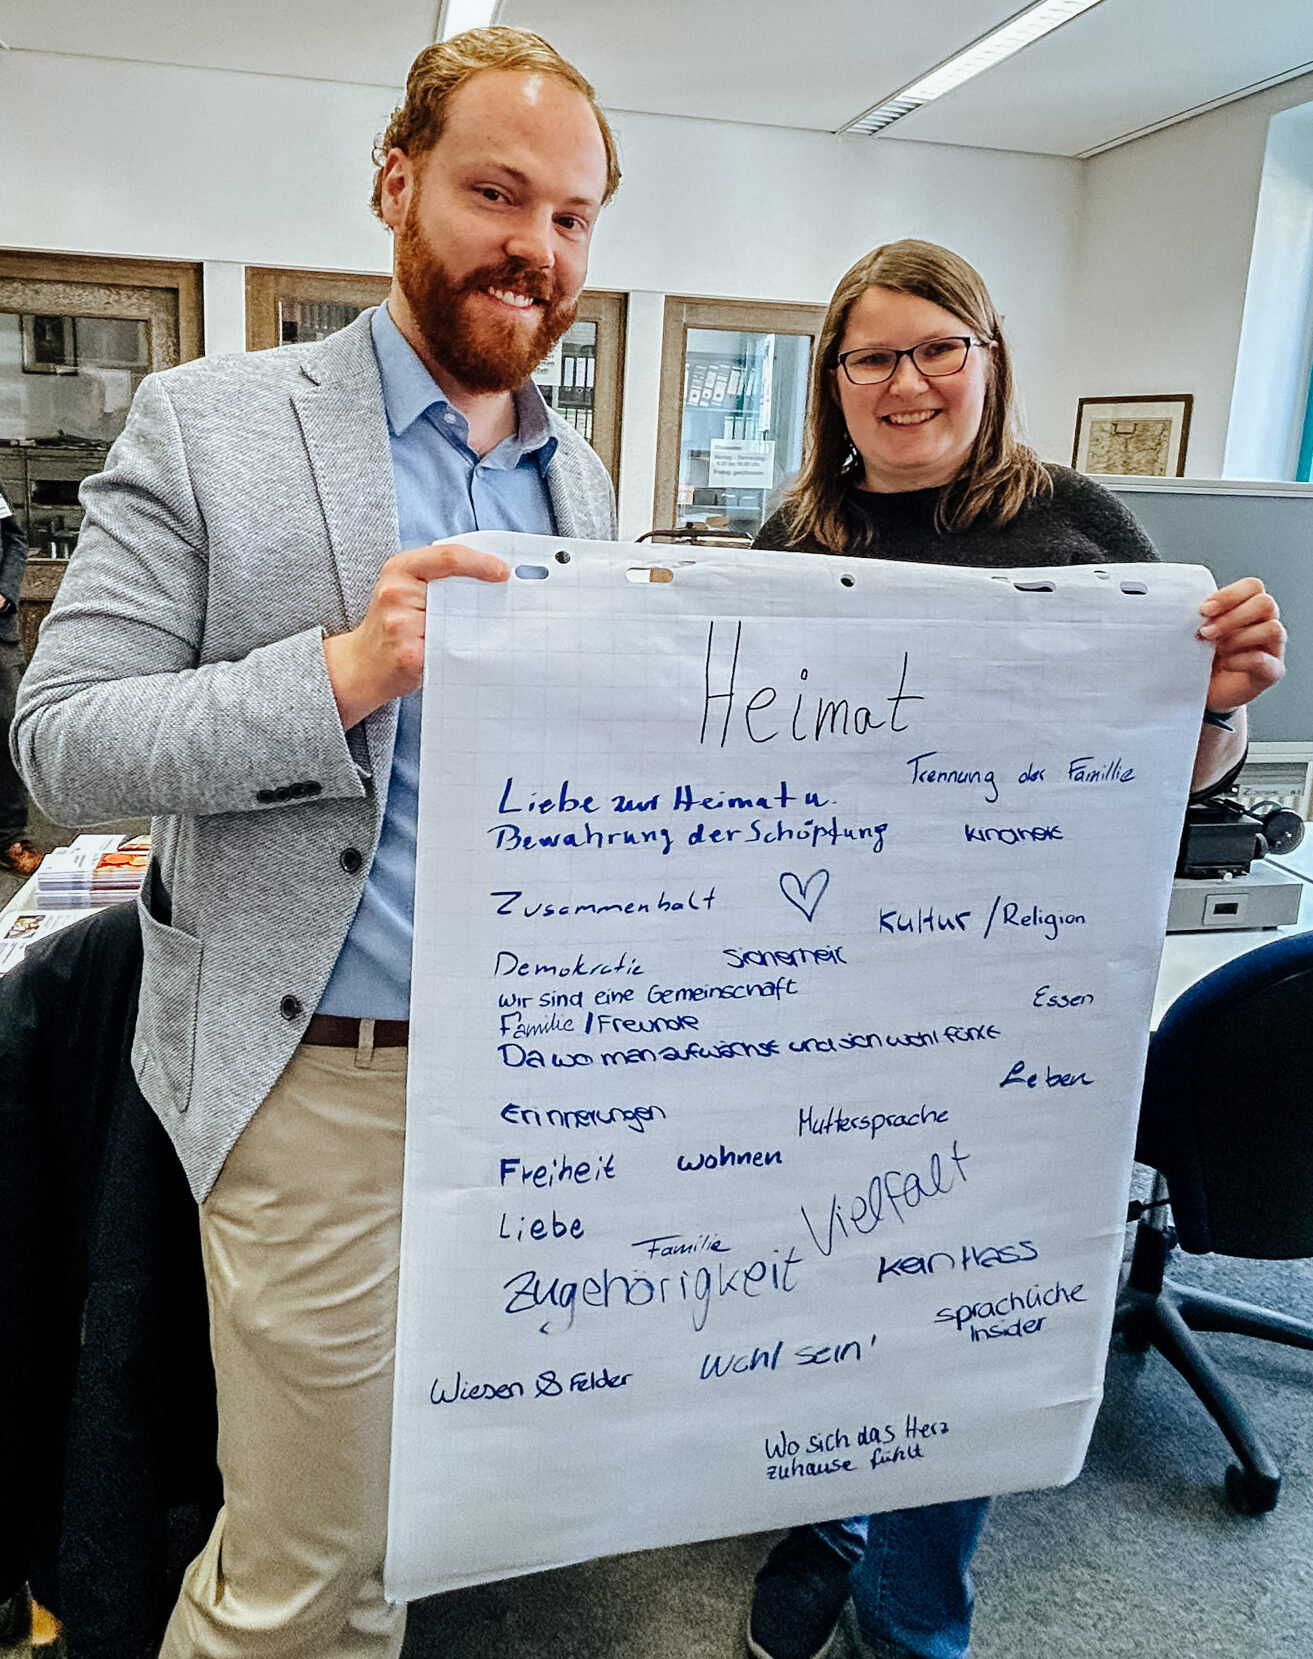 Heimat
Trennung der Famillie
Liebe zur Heimat u.
Bewahrung der Schöpfung
Kindheit
Zusammenhalt
Kultur / Religion
Demokratie
Sicherheit
wir sind eine Gemeinschaft
Essen
Familie / Freunde
Da wo man aufwächst und sich wohl fühlt
Leben
Erinnerungen
Muttersprache
Freiheit
wohnen
Vielfalt
Liebe
Familie
Zugehörigkeit
kein Hass
sprachliche
Insider
Wohl sein'
Wiesen & Felder
Wo sich das Herz
zuhause fühlt